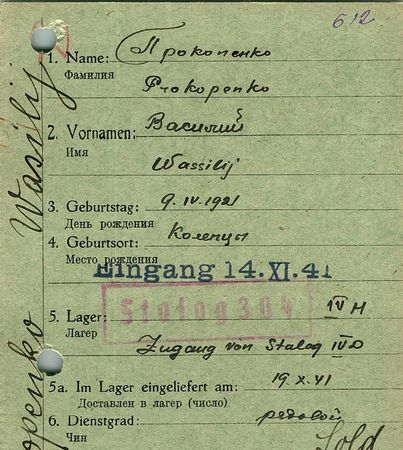 612
1. Name: Прокопенко
Фамилия
Prokopenko
2. Vornamen: Василий
Имя
Wassilij
3. Geburtstag: 9. IV. 1921
День рождения
4. Geburtsort: Колепцы
Место рождения
Eingang 14. XI. 41
Stalag 304
5. Lager: IV H
Лагерь
Zugang von Stalag IV D
5a. Im Lager eingeliefert am: 19. X. 41
Доставлен в лагерь (число)
6. Dienstgrad: редовой
Чин
Sold
Wassilij